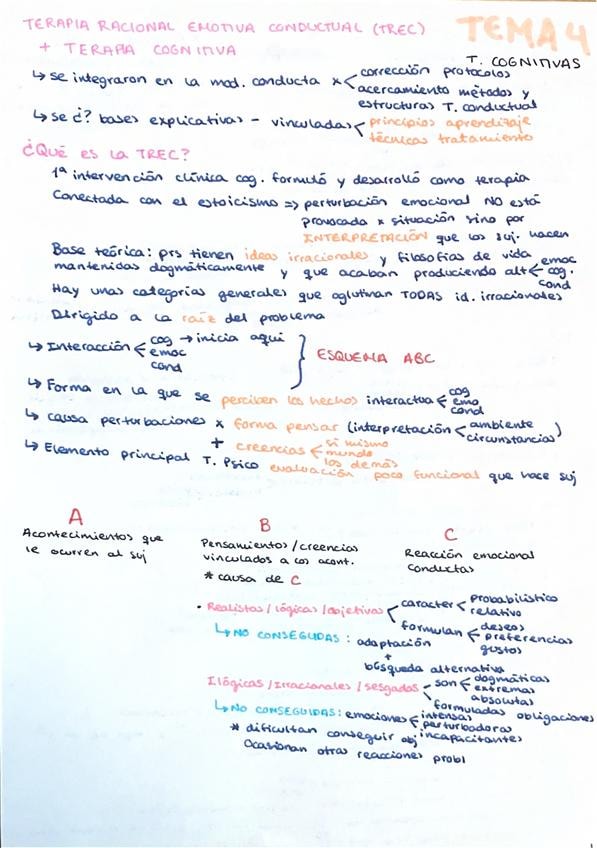 TERAPIA RACIONAL EMOTIVA CONDUCTUAL (TREC) TEMA 4
+ TERAPIA COGNITIVA T. COGNITIVAS
↳ se integraron en la mod. conducta x < corrección protocolos
acercamiento métodos y
estructuras T. conductual
↳ se ¿? bases explicativas - vinculadas < principios aprendizaje
técnicas tratamiento
¿QUÉ ES LA TREC?
1ª intervención clínica cog. formuló y desarrolló como terapia
Conectada con el estoicismo => perturbación emocional NO está
provocada x situación sino por
INTERPRETACIÓN que los suj. hacen
Base teórica: prs tienen ideas irracionales y filosofías de vida
mantenidas dogmáticamente y que acaban produciendo alt < emoc
cog.
cond
Hay unas categorías generales que aglutinan TODAS id. irracionales
Dirigido a la raíz del problema
↳ Interacción < cog → inicia aquí
emoc
cond
} ESQUEMA ABC
↳ Forma en la que se perciben los hechos interactua < cog
emo
cond
↳ causa perturbaciones x forma pensar (interpretación < ambiente
circunstancias)
+ creencias < si mismo
mundo
los demás
↳ Elemento principal T. Psico evaluación poco funcional que hace suj
A
Acontecimientos que
le ocurren al suj
B
Pensamientos/creencias
vinculados a los acont.
* causa de C
C
Reacción emocional
conductas
• Realistas/lógicas/objetivas < caracter < probabilístico
relativo
formulan < deseos
preferencias
gustos
↳ NO CONSEGUIDAS: adaptación
+
búsqueda alternativa
Ilógicas/Irracionales/sesgadas - son < dogmáticas
extremas
absolutas
formuladas obligaciones
↳ NO CONSEGUIDAS: emociones < intensas
perturbadora
incapacitantes
* dificultan conseguir obj
Ocasionan otras reacciones probl